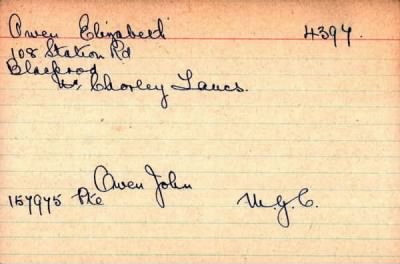 Owen Elizabeth 4397.
108 Station Rd
Blackrod
Nr. Chorley Lancs.
Owen John
157975 Pte M.G.C.